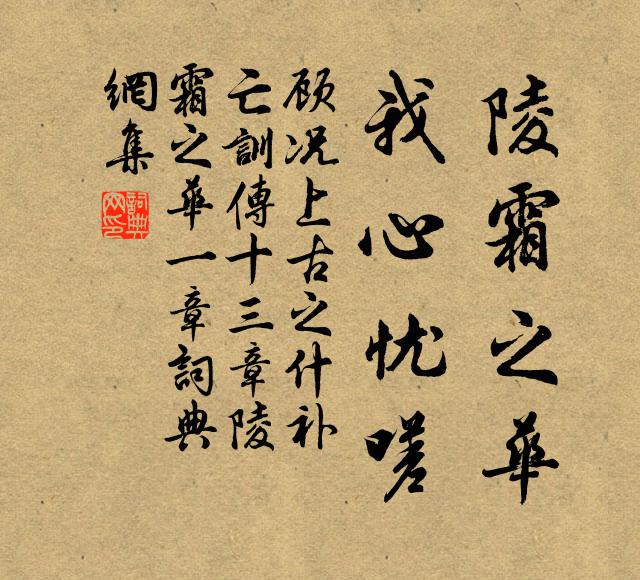 陵霜之華
我心忧嗟
顾况上古之什补
亡訓傳十三章陵
霜之華一章詞典
網集
詞典網印